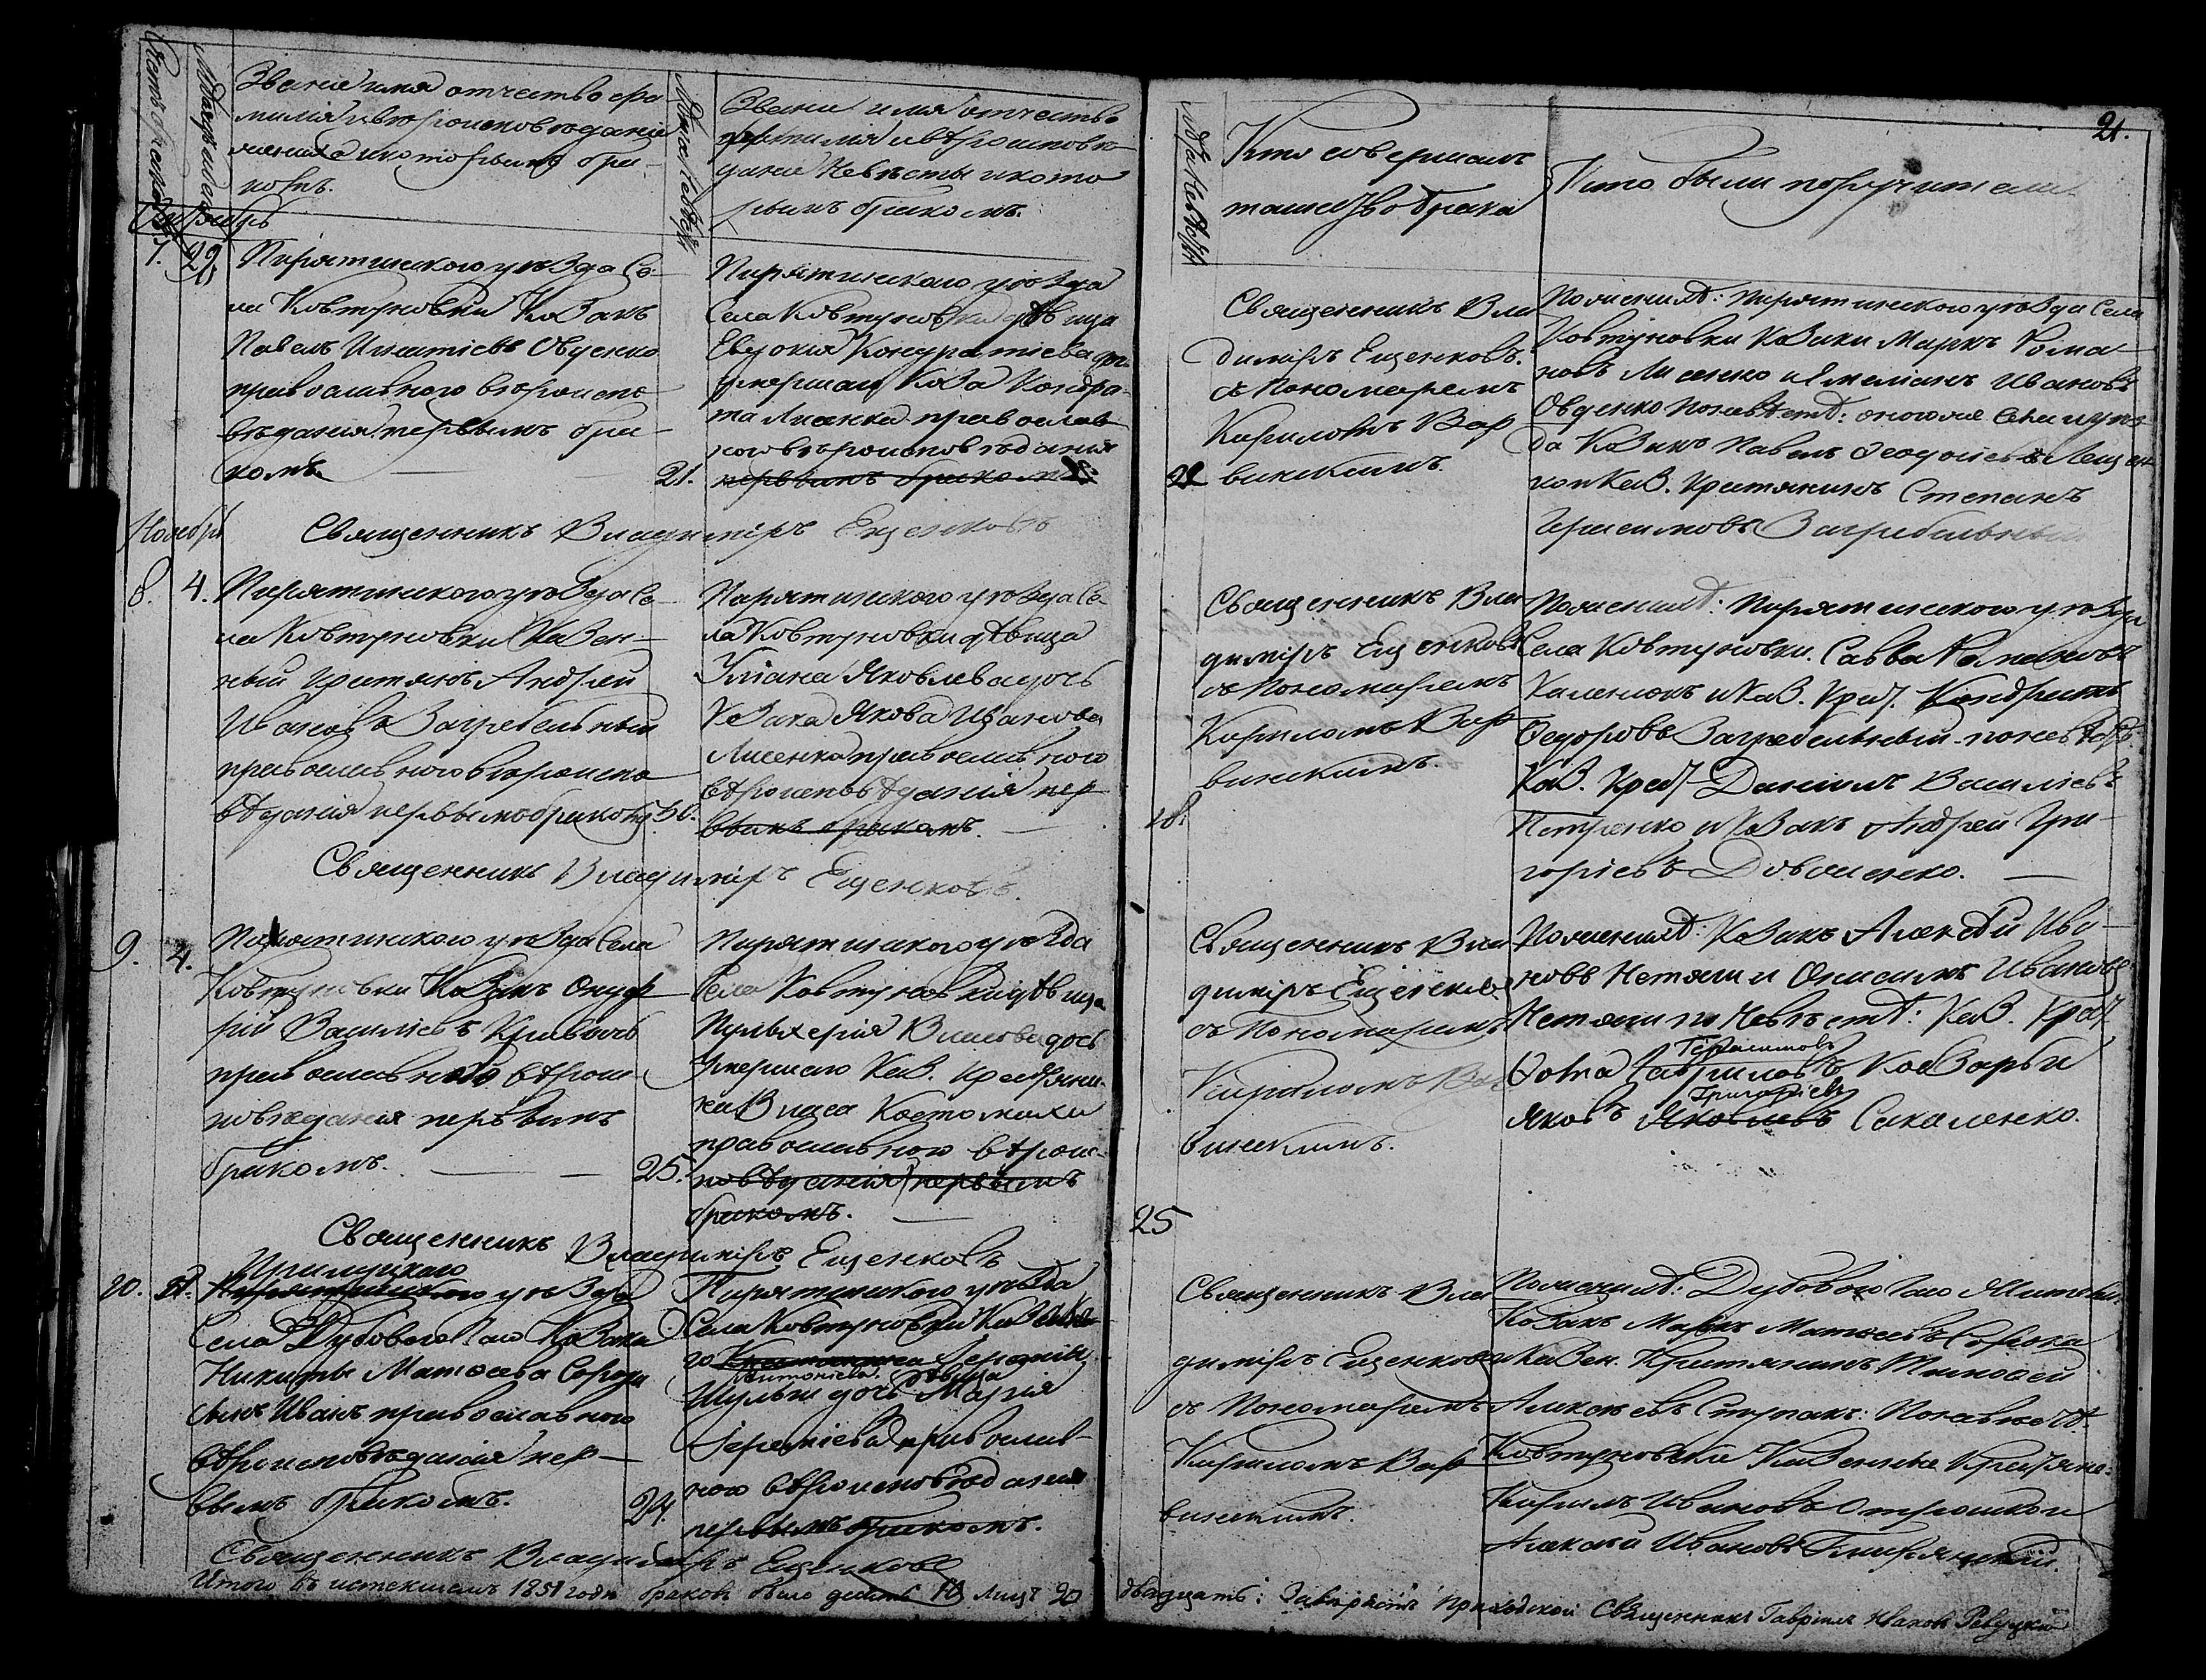 Счетъ браковъ
Мѣсяцъ и день
Званіе имя отчество фа-
милія и вѣроисповѣданіе
жениха и которымъ бра-
комъ.
Лѣта жениха
Званіе имя отчество
фамилія и вѣроисповѣ-
даніе невѣсты и кото
рымъ бракомъ.
Лѣта невѣсты
Кто совершалъ
таинство брака
Кто были поручители
21.
Октябрь
7. 29.
Пирятинского уѣзда Се-
ла Ковтуновки Козакъ
Павелъ Игнатіевъ Овденко
православного вѣроиспо-
вѣданія первымъ бра-
комъ
21.
Пирятинского уѣзда
Села Ковтуновки дѣвица
Евдокія Кондратіева дочь
умершаго Коза Кондра-
та Лисенка православ-
ного вѣроисповѣданія
первымъ бракомъ
Священникъ Вла
диміръ Ещенковъ.
съ Пономаремъ
Кириломъ Вар
винскимъ.
По женихѣ: Пирятинского уѣзда Села
Ковтуновки Козаки Маркъ Рома
новъ Лисенко и Емеліанъ Ивановъ
Овденко по невѣстѣ: оного же Села и уѣз
да Козакъ Павелъ Феодосіевъ Лещен
ко и Каз. Крестянинъ Степанъ
Герасимовъ Загребельный
Священникъ Владиміръ Ещенковъ
Ноябрь
8. 4.
Пирятинского уѣзда Се-
ла Ковтуновки Казен-
ный Крестянъ Андрей
Ивановъ Загребельный
православного вѣроиспо
вѣданія первымъ бракомъ
Пирятинского уѣзда Се-
ла Ковтуновки дѣвица
Уліана Яковлева дочь
Козака Якова Иванова
Лисенка православного
вѣроисповѣданія пер
вымъ бракомъ.
18.
Священникъ Вла
диміръ Ещенковъ
съ Пономаремъ
Кириломъ Вар
винскимъ.
По женихѣ: Пирятинского уѣзда
Села Ковтуновки. Савва Романовъ
Каленюкъ и Каз. Крест. Кондратъ
Федоровъ Загребельный по невѣстѣ
Каз. Крест. Даніилъ Василіевъ
Петренко и Козакъ Андрей Гри-
горіевъ Довженко.
Священникъ Владиміръ Ещенковъ.
9. 4.
Пирятинского уѣзда Села
Ковтуновки Козакъ Онуф
рій Василіевъ Кривошъ
православного вѣроис-
повѣданія первымъ
бракомъ.
25.
Пирятинского уѣзда
Села Ковтуновки дѣвица
Пульхерія Власова дочь
Умершаго Каз. Крестяни-
на Власа Костомахи
православного вѣроис-
повѣданія первымъ
бракомъ.
25
Священникъ Вла
диміръ Ещенковъ
съ Пономаремъ
Кириломъ Вар
винскимъ.
По женихѣ: Козакъ Алексѣй Ива-
новъ Нетяги и Онисимъ Ивановъ
Нетяги по Невѣстѣ: Каз. Крест.
Герасимовъ
Фома Гавриловъ Козарь и
Григоріевъ
Яковъ Яковлевъ Сакаленко.
Священникъ Владиміръ Ещенковъ
Прилуцкаго
10.
Пирятинского уѣзда
Села Дубового Гаю Козака
Никиты Матѳеева Сороки
сынъ Иванъ православного
вѣроисповѣданія пер-
вымъ бракомъ.
24.
Пирятинского уѣзда
Села Ковтуновки Казенна
го Крестянина Іереміи
Антоніева дѣвица
Шульги дочь Марія
Іереміева православ-
ного вѣроисповѣданія
первымъ бракомъ.
Священникъ Вла
диміръ Ещенковъ
съ Пономаремъ
Кириломъ Вар
винскимъ.
По женихѣ: Дубового Гаю Жители
Козакъ Маркъ Матѳеевъ Сорока
и Казен. Крестянинъ Тимоѳей
Алексѣевъ Ступакъ: По невѣстѣ
Ковтуновски Казенные Крестяне.
Кирилъ Ивановъ Отрошко и
Алексѣй Ивановъ Гмирянскій.
Священникъ Владиміръ Ещенковъ
Итого въ истекшемъ 1851 году браковъ было десять 10 лицъ 20
двадцать: Завѣряетъ Приходской Священникъ Гавріилъ Ивановъ Ревуцкій